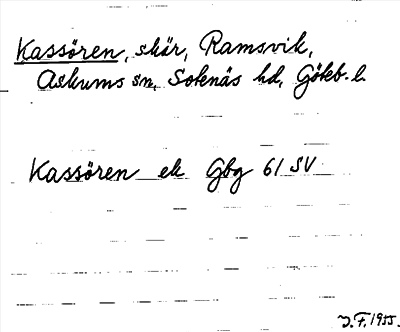 Kassören, skär, Ramsvik,
Askums sn, Sotenäs hd, Göteb. l.
Kassören ek Gbg 61 SV
J.F. 1955.